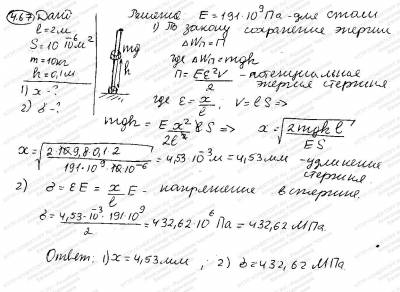 4.67 Дано Решение E = 191·10⁹ Па - для стали
l = 2м
S = 10·10⁻⁶ м²
m = 10кг
h = 0,1м
1) x - ?
2) σ - ?
mg
h
1) По закону сохранения энергии
ΔWп = П
где ΔWп = mgh
П = Eε²V/2 - потенциальная энергия стержня
где ε = x/l, V = lS ⇒
mgh = E x²/2l² lS ⇒ x = √(2mghl/ES)
x = √(2·10·9,8·0,1·2/191·10⁹·10·10⁻⁶) = 4,53·10⁻³ м = 4,53 мм - удлинение стержня.
2) σ = εE = x/l E - напряжение в стержне.
σ = 4,53·10⁻³·191·10⁹/2 = 432,62·10⁶ Па = 432,62 МПа.
Ответ: 1) x = 4,53 мм ; 2) σ = 432,62 МПа.